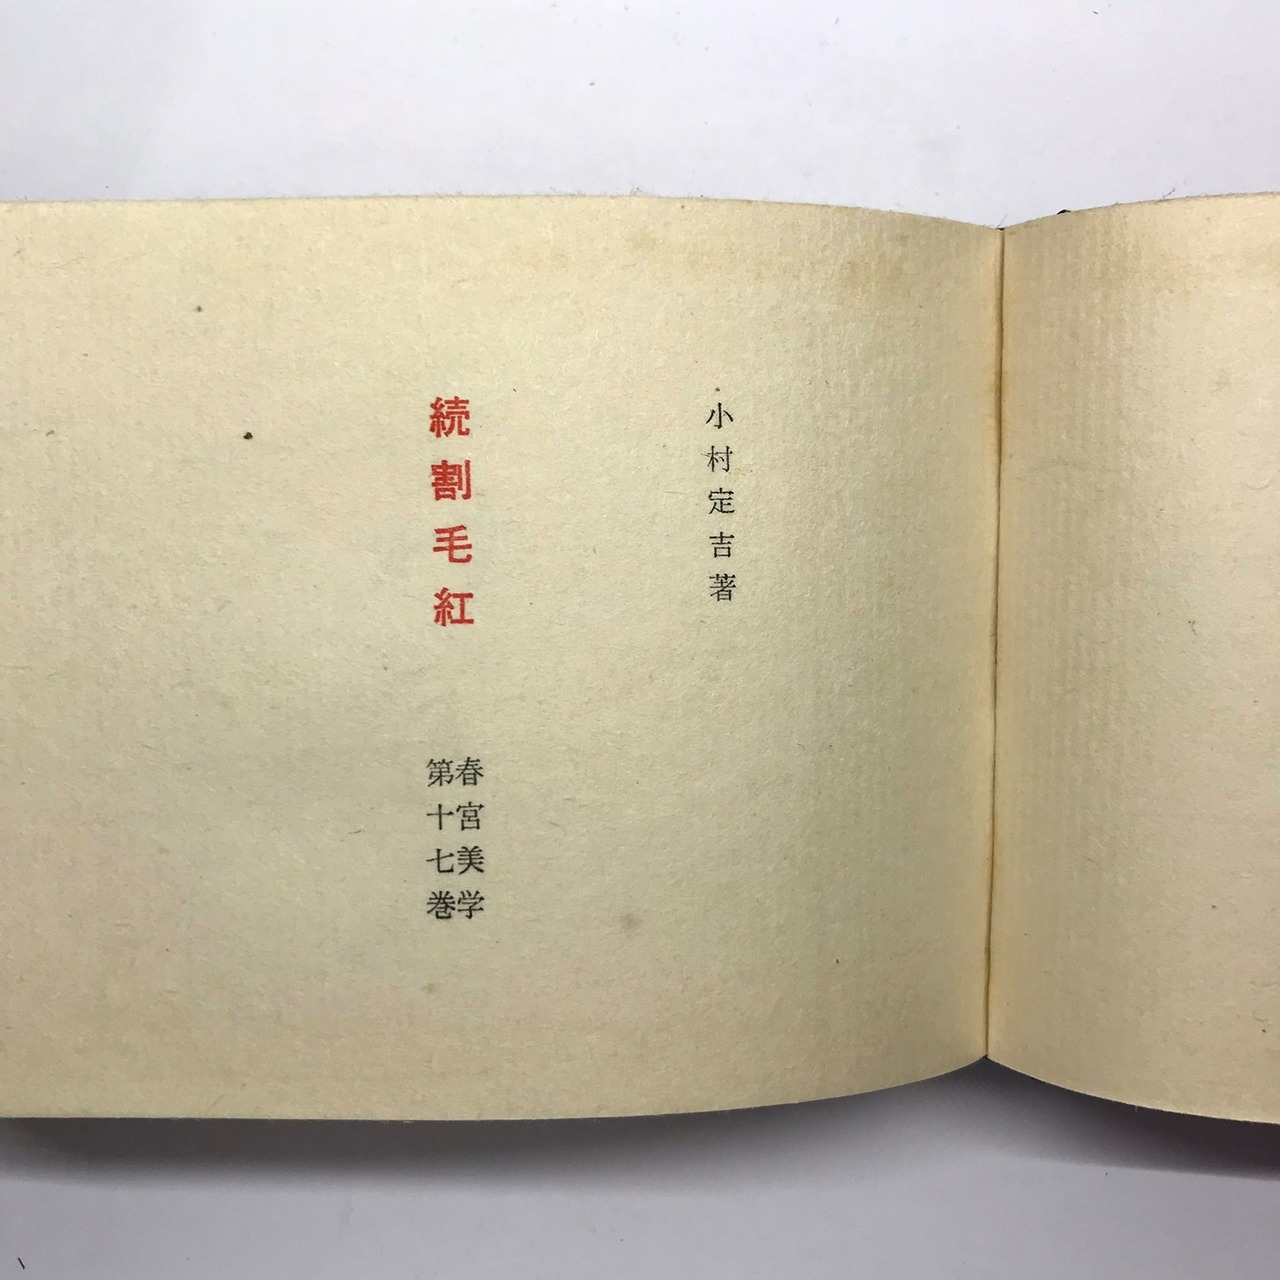 小村定吉著
続割毛紅
春宮美学
第十七巻